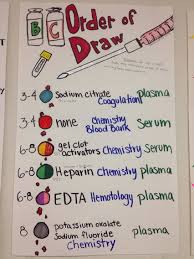 B C
Order of
Draw
3-4 Sodium citrate Coagulation plasma
3-4 none Chemistry Blood Bank Serum
6-8 gel clot activators Chemistry Serum
6-8 Heparin Chemistry plasma
6-8 EDTA Hemotology plasma
8 potassium oxalate
sodium fluoride plasma
Chemistry